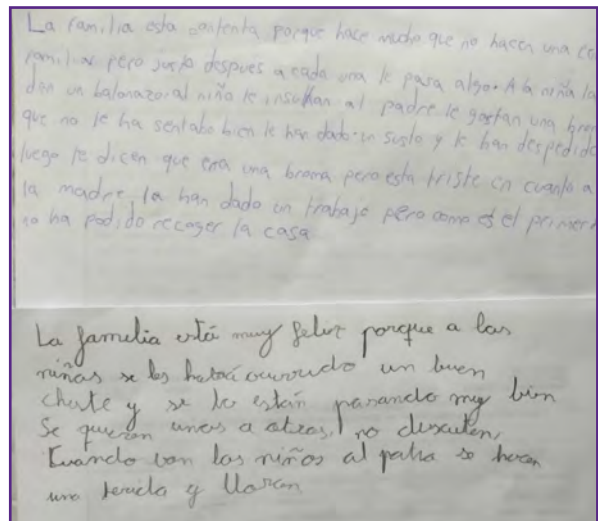 La familia esta contenta porque hace mucho que no hacen una co
familiar pero justo después a cada una le pasa algo. A la niña la
dan un balonazo. al niño le insultan al padre le gastan una brom
que no le ha sentabo bien le han dado un susto y le han despedido
luego le dicen que era una broma pero esta triste en cuanto a
la madre la han dado un trabajo pero como es el primer
no ha podido recoger la casa

La familia está muy feliz porque a las
niñas se les había ocurrido un buen
chiste y se lo están pasando muy bien
Se quieren unos a otros, no discuten,
Cuando van los niños al patio se hacen
una herida y lloran